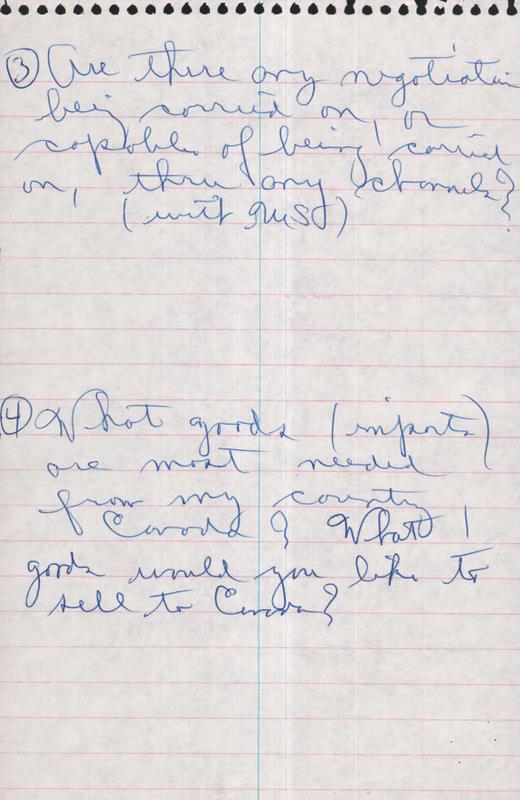 ③ Are there any negotiations
being carried on, or
capable of being carried
on, thru any channels?
(with
④ What goods (imports)
are most needed
from my country
Canada? What
goods would you like to
sell to Canada?